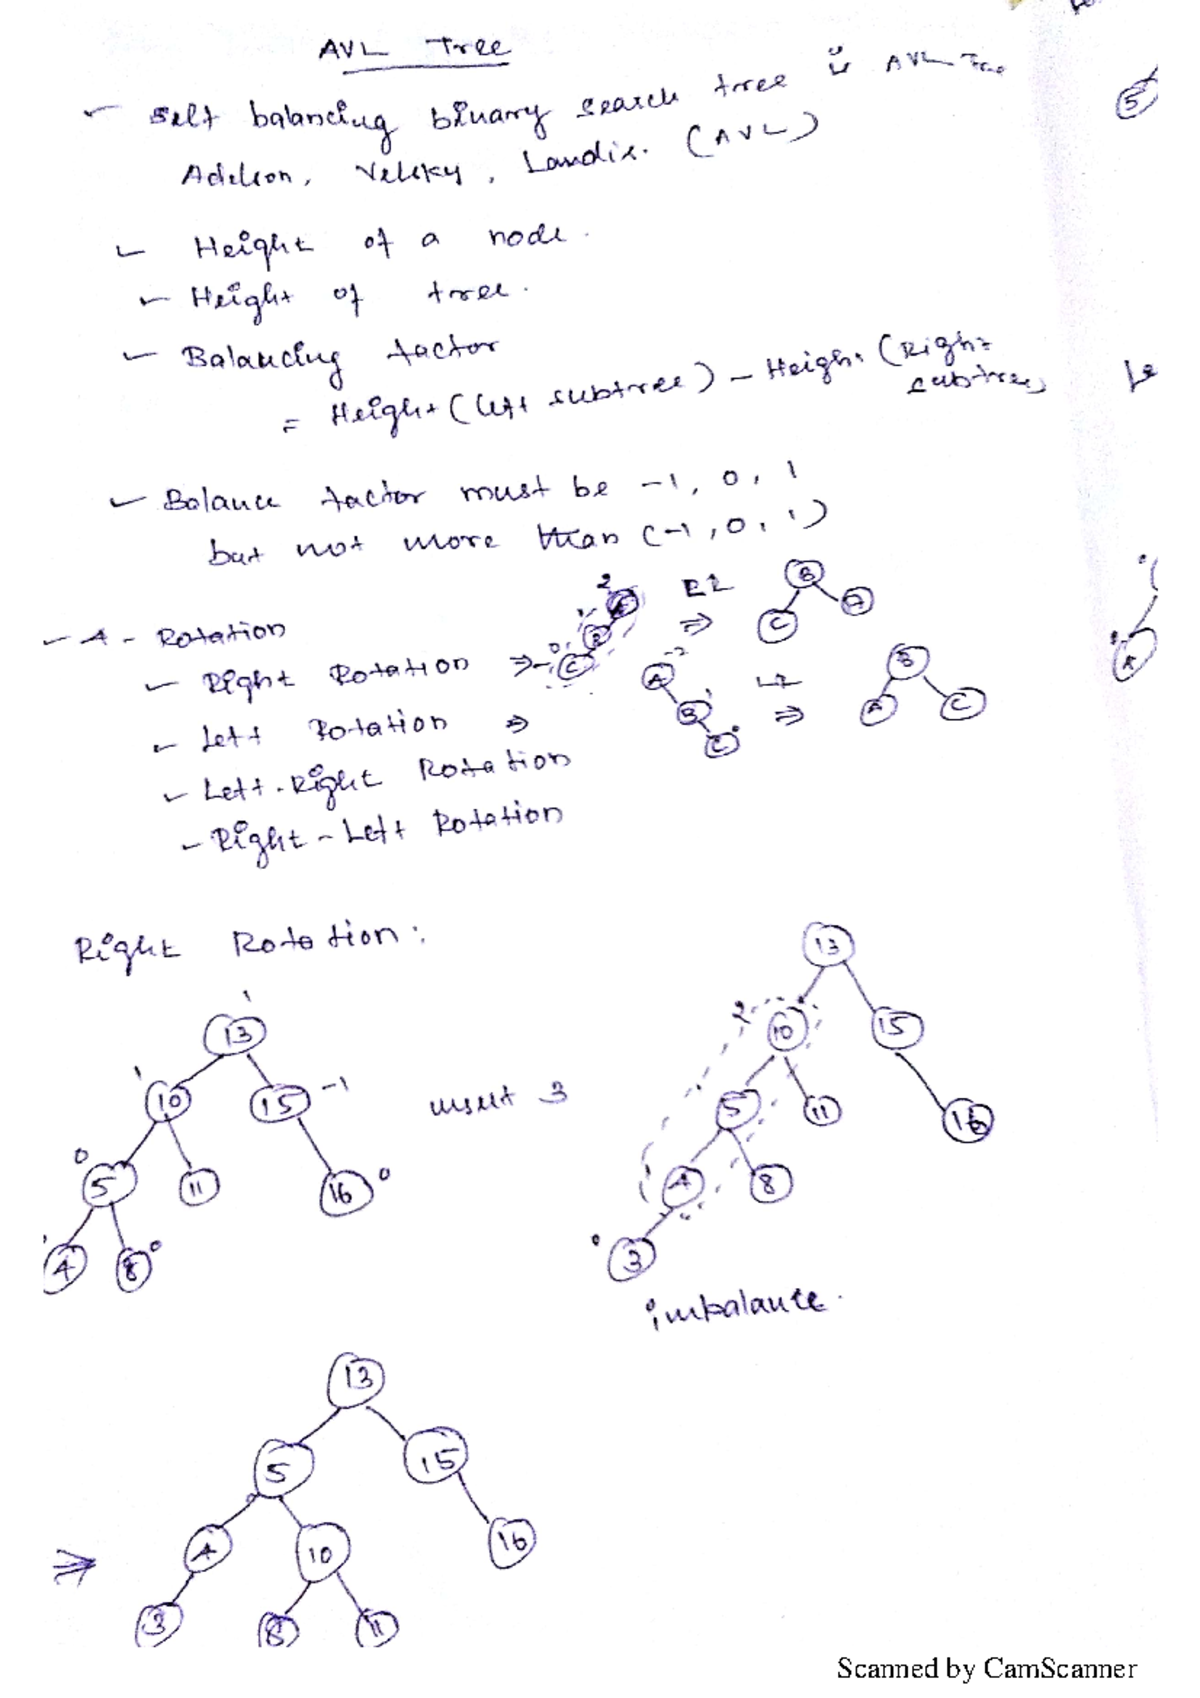 AVL Tree
Self balancing binary search tree is AVL Tree
Adelson, Velsky, Landis. (AVL)
5
Height of a node.
Height of tree.
Balancing factor
= Height (left subtree) - Height (Right subtree)
Le
Balance factor must be -1, 0, 1
but not more than (-1, 0, 1)
4 - Rotation
2 A
1 B
0 C
RR ⇒
B
C A
Right Rotation ⇒
A
B 1
C 0
LR ⇒
B
A C
A
Left Rotation ⇒
Left-Right Rotation
Right-Left Rotation
Right Rotation:
1
13
1
10 15 -1
0
5 11 16 0
4 8 0
insert 3
13
2
10 15
5 11 16
4 8
3
imbalance.
13
5 15
⇒ 4 10 16
3 8 11
Scanned by CamScanner